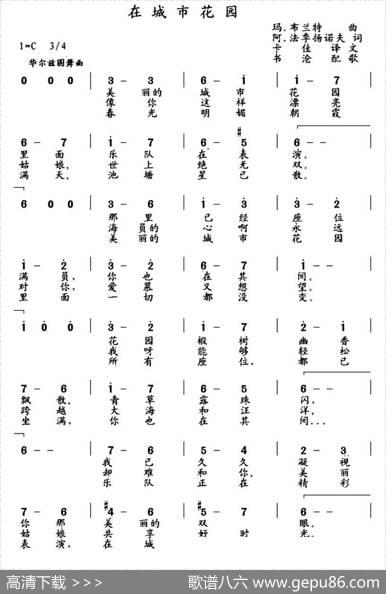 在城市花园
玛.布兰特 曲
阿.法李扬诺夫 词
1=C 3/4
卡佳 译文
书沦 配歌
华尔兹圆舞曲
0 0 0 | 3 - 3 | 6 - i | 7 - 6 |
美 丽的 城 市 花 园
像 你 这 样 漂 亮
春 光 明 媚 朝 霞
6 - 7 | i - 7 | 6 - #5 | 6 - - |
里 面 乐 队 在 表 演。
姑 娘, 世 上 绝 无 双。
满 天。 池 塘 星 已 散。
6 0 0 | 3 - 2 | i - 3 | 3 - 2 |
那 里 已 经 座 位
海 员的 心 啊 永 远
美 丽的 城 市 花 园
i - 2 | 3 - 2 | i - 7 | i - - |
满 员, 你 也 在 其 间。
对 你, 爱 慕 又 想 望。
里 面 一 切 都 没 变。
i 0 0 | 3 - 2 | i - 7 | 2 - i |
花 园 椴 树 幽 香
我 呀 能 够 轻 松
所 有 座 位, 都 已
7 - 6 | i - 7 | 6 - 5 | 6 - - |
飘 散, 青 草 露 珠 闪,
跨 越 大 海 和 汪 洋,
坐 满, 你 也 在 其 间...
6 - - | 7 - 6 | 5 - 4 | 2 - 3 |
我 已 久 久 凝 视
却 难 和 你, 美 丽
乐 队 正 在 精 彩
7 - 6 | #4 - 6 | #5 - 7 | 6 - - |
你 那 美 丽的 双 眼。
姑 娘 共 享 好 时 光.
表 演, 在 城
高清下载 >>>
歌谱八六 www.gepu86.com